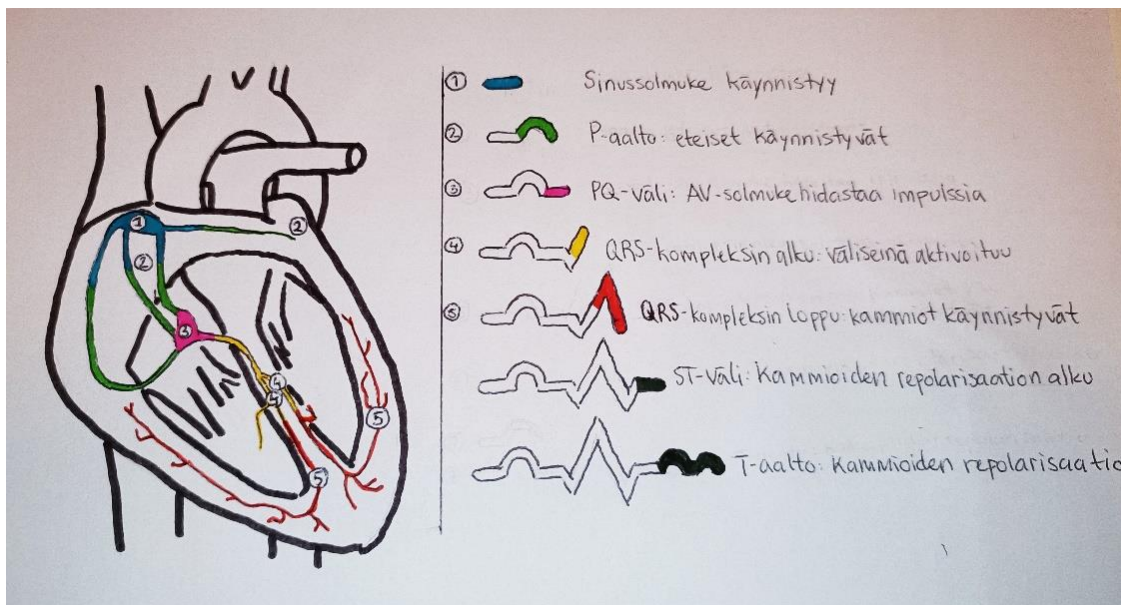 ① Sinussolmuke käynnistyy
② P-aalto: eteiset käynnistyvät
③ PQ-väli: AV-solmuke hidastaa impulssia
④ QRS-kompleksin alku: väliseinä aktivoituu
⑤ QRS-kompleksin loppu: kammiot käynnistyvät
ST-väli: Kammioiden repolarisaation alku
T-aalto: Kammioiden repolarisaatio
1
2
2
3
4
4
5
5